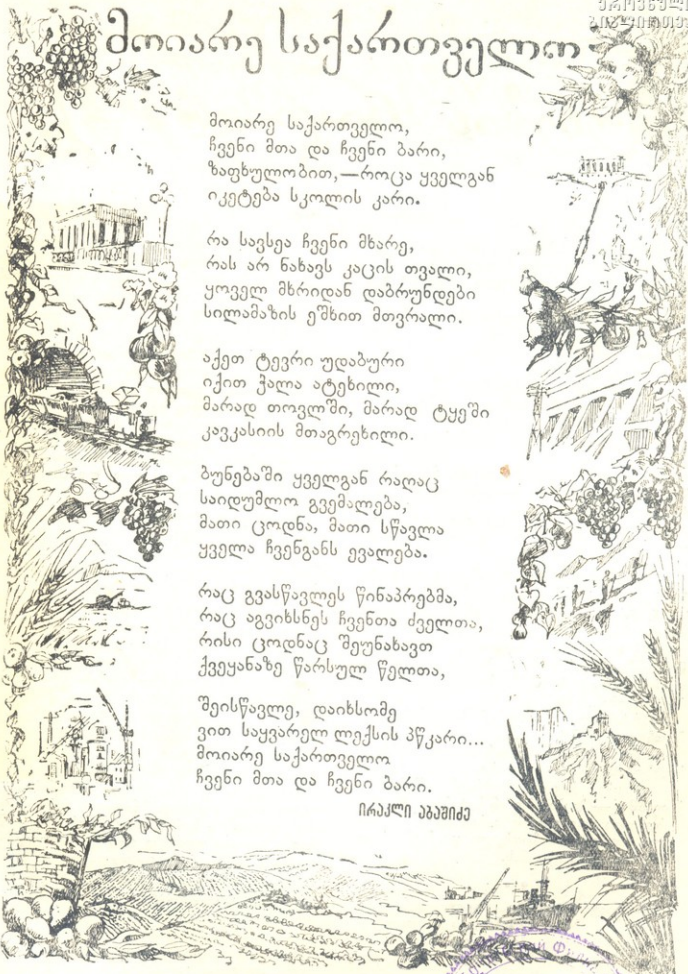 ეროვნული
ბიბლიოთეკა
მოიარე საქართველო
მოიარე საქართველო,
ჩვენი მთა და ჩვენი ბარი,
ზაფხულობით,—როცა ყველგან
იკეტება სკოლის კარი.
რა სავსეა ჩვენი მხარე,
რას არ ნახავს კაცის თვალი,
ყოველ მხრიდან დაბრუნდები
სილამაზის ეშხით მთვრალი.
აქეთ ტევრი უდაბური
იქით ჭალა ატეხილი,
მარად თოვლში, მარად ტყეში
კავკასიის მთაგრეხილი.
ბუნებაში ყველგან რაღაც
საიდუმლო გვემალება,
მათი ცოდნა, მათი სწავლა
ყველა ჩვენგანს ევალება.
რაც გვასწავლეს წინაპრებმა,
რაც აგვიხსნეს ჩვენთა ძველთა,
რისი ცოდნაც შეუნახავთ
ქვეყანაზე წარსულ წელთა,
შეისწავლე, დაიხსომე
ვით საყვარელ ლექსის პწკარი...
მოიარე საქართველო
ჩვენი მთა და ჩვენი ბარი.
ირაკლი აბაშიძე